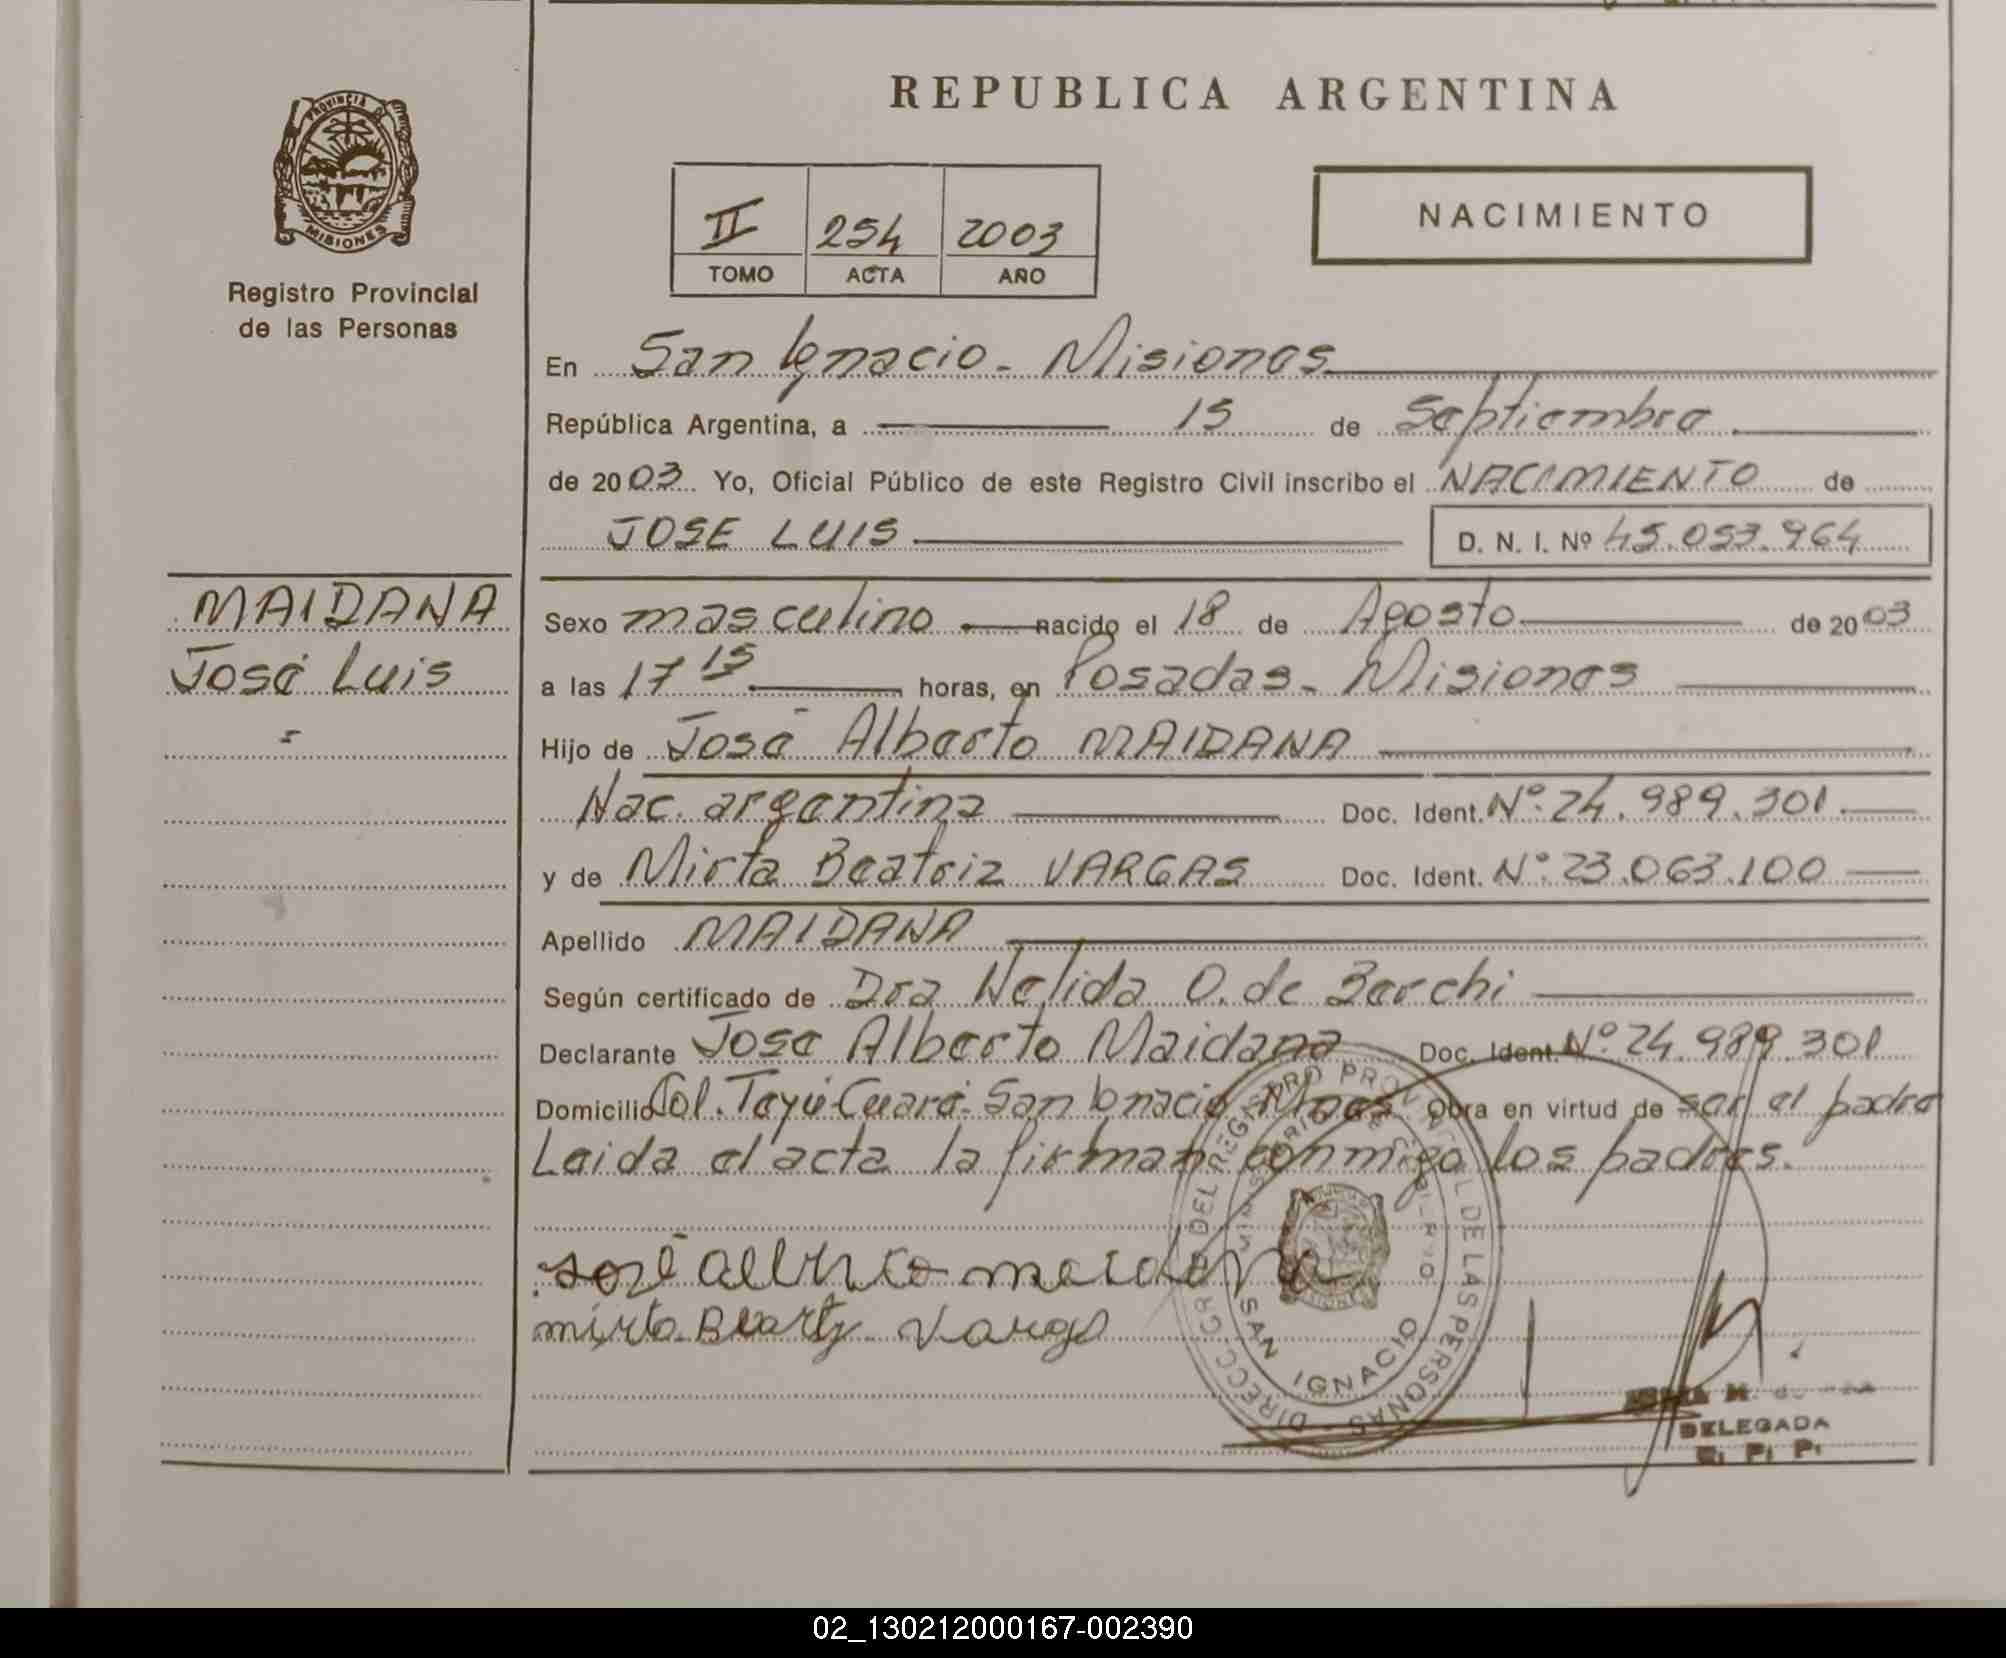 REPUBLICA ARGENTINA
PROVINCIA DE
MISIONES
Registro Provincial
de las Personas
II 254 2003
TOMO ACTA AÑO
NACIMIENTO
En San Ignacio - Misiones
República Argentina, a 15 de Septiembre
de 2003 Yo, Oficial Público de este Registro Civil inscribo el NACIMIENTO de
JOSE LUIS D. N. I. Nº 45.053.964
MAIDANA
José Luis
Sexo masculino nacido el 18 de Agosto de 2003
a las 17 15 horas, en Posadas - Misiones
Hijo de José Alberto MAIDANA
Nac. argentina Doc. Ident. Nº: 24.989.301
y de Mirta Beatriz VARGAS Doc. Ident. Nº: 23.063.100
Apellido MAIDANA
Según certificado de Dra Nelida O. de Berchi
Declarante José Alberto Maidana Doc. Ident. Nº 24.989.301
Domicilio Col. Teyú Cuaré - San Ignacio Mnes Obra en virtud de ser el padre
Leida el acta la firman conmigo los padres.
José alberto maidana
mirta Vargas
DIRECC GR DEL REGISTRO PROVINCIAL DE LAS PERSONAS
MINISTERIO DE
SAN IGNACIO
DELEGADA
02_130212000167-002390